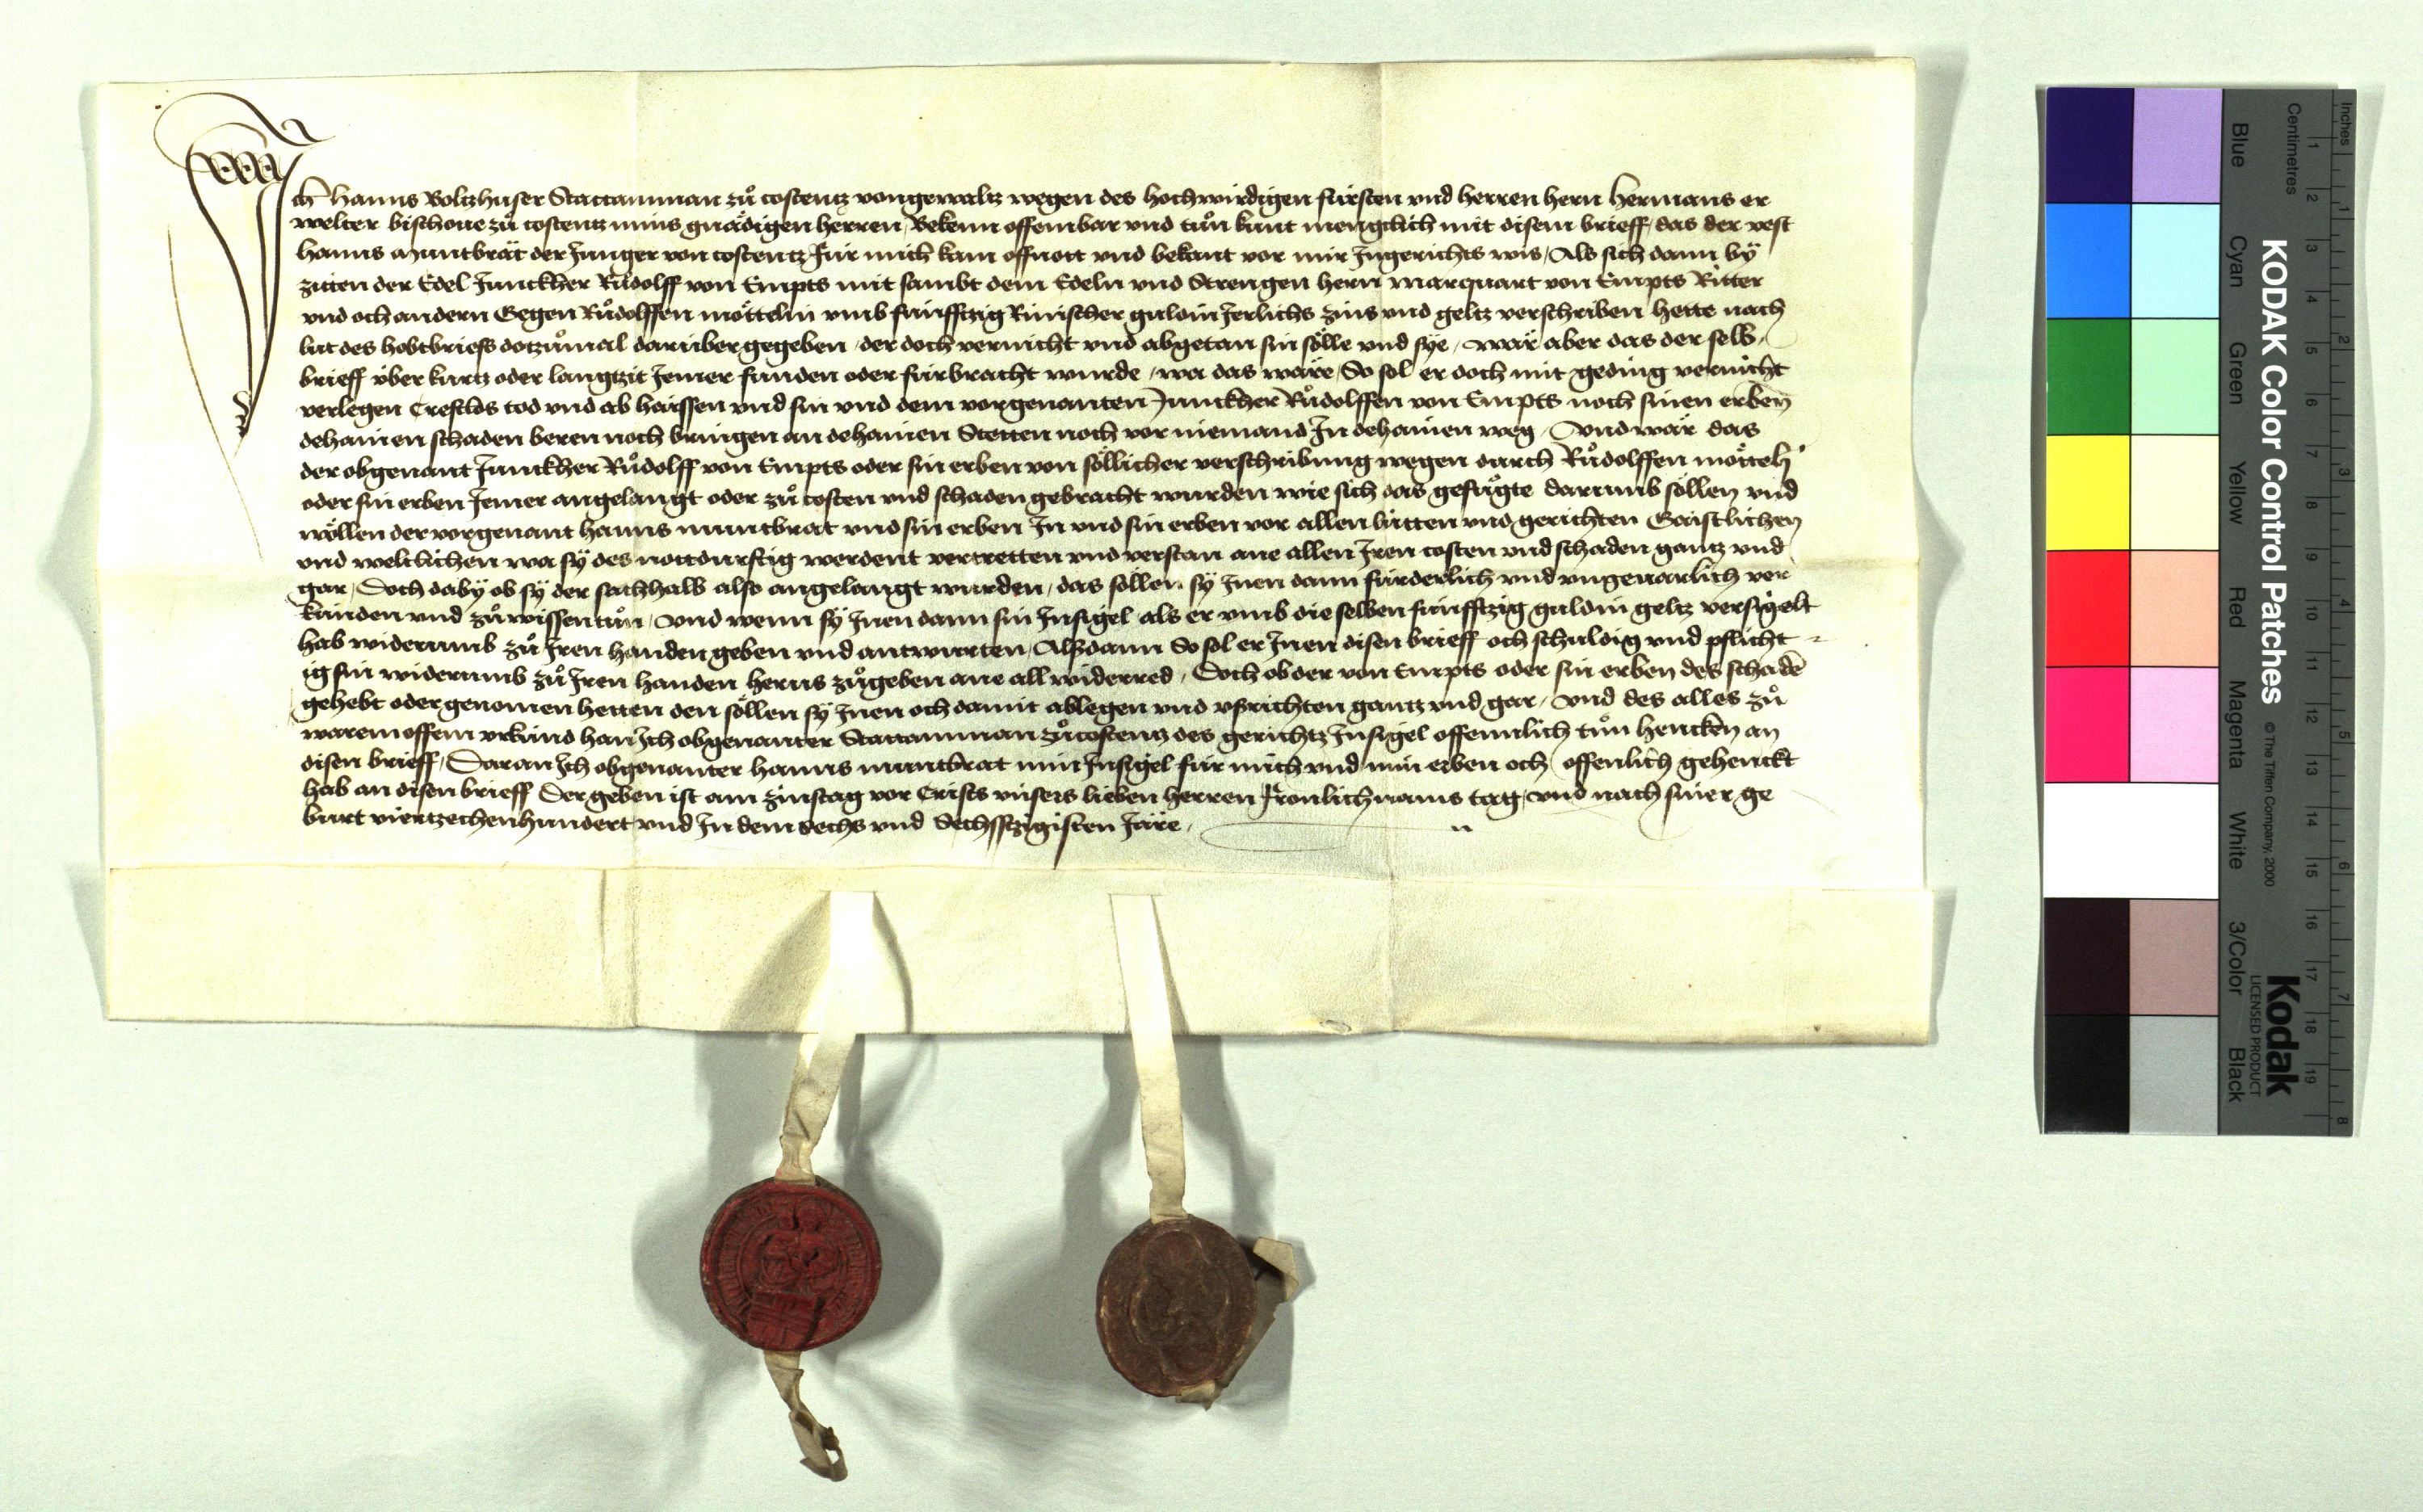 Ich Hanns Boltzhuser Stattamman zů costentz von gewaltz wegen des hochwirdigen fürsten vnd herren hern Hermans er
welter bischoue zů costentz mins gnädigen herren, Bekenn offembar vnd tůn kunt menglich mit disem brieff, das der vest
hanns Muntbrät der Junger von costentz für mich kam offnott vnd bekant vor mir Jngerichtz wis, Als sich dann by
ziten der Edel Junckher Růdolff von Empts mit sambt dem Edeln vnd Strengen hern Marquart von Empts Ritter
vnd och andern Gegen Růdolffen möttelin vmb fünfftzig Rinischer guldin Jerlichs zins vnd geltz verschriben hette nach
lut des hobtbriefs dotzůmal darüber gegeben, der doch vernicht vnd abgetan sin sölle vnd sÿe, wär aber das der selb
brieff über kurtz oder langtzit Jemer funden oder fürbracht wurde, wa das wäre, So sol er doch mit geding vernicht
verlegen Crefftlos tod vnd ab haissen vnd sin vnd dem vorgenanten Junckher Růdolffen von Empts noch sinen erben
dehainen schaden beren noch bringen an dehainen Stetten noch vor niemand Jn dehainen weg, Vnd wär das
der obgenant Junckher Růdolff von Empts oder sin erben von söllicher verschribung wegen durch Růdolffen mötteli
oder sin erben Jemer angelangt oder zů costen vnd schaden gebracht wurden wie sich das gefůgte darumb söllen vnd
wöllen der vorgenant hanns muntbrat vnd sin erben Jn vnd sin erben vor allen lütten vnd gerichten Gaistlichen
vnd weltlichen wa sÿ des nottdurftig werdent vertretten vnd verstan ane allen Jren costen vnd schaden gantz vnd
gar, Doch dabÿ ob sÿ der sachhalb also angelangt wurden, das söllen sÿ Jnen dann fürderlich vnd vngeuarlich ver
künden vnd zů wissen tůn, Vnd wenn sÿ Jnen dann sin Jnsigel als er vmb die selben fünfftzig guldin geltz versigelt
hab widerumb zů Jren handen geben vnd antwurten, Alßdann So sol er Jnen disen brieff och schuldig vnd pflicht
ig sin widerumb zů Jren handen herus zůgeben ane all widerred, Doch ob der von Empts oder sin erben des schadē
gehebt oder genomen hetten den söllen sÿ Jnen och damit ablegen vnd vßrichten gantz vnd gar, Vnd des alles zů
warem offem vrkünd han Jch obgenanter Stattamman zů costentz des gerichtz Jnsigel offennlich tůn hencken an
disen brieff, Daran Jch obgenanter hanns muntbrat min Jnsigel für mich vnd min erben och offenlich gehenckt
hab an disen brieff Der geben ist am zinstag vor Crists vnsers lieben herren fronlichnams tag, vnd nach siner ge
burt viertzechenhundert vnd Jn dem Sechs vnd Sechsftzigisten Jare,
Inches
Centimetres
KODAK Color Control Patches
© The Tiffen Company, 2000
Kodak
LICENSED PRODUCT
Blue Cyan Green Yellow Red Magenta White 3/Color Black
1 2 3 4 5 6 7 8 9 10 11 12 13 14 15 16 17 18 19
1 2 3 4 5 6 7 8